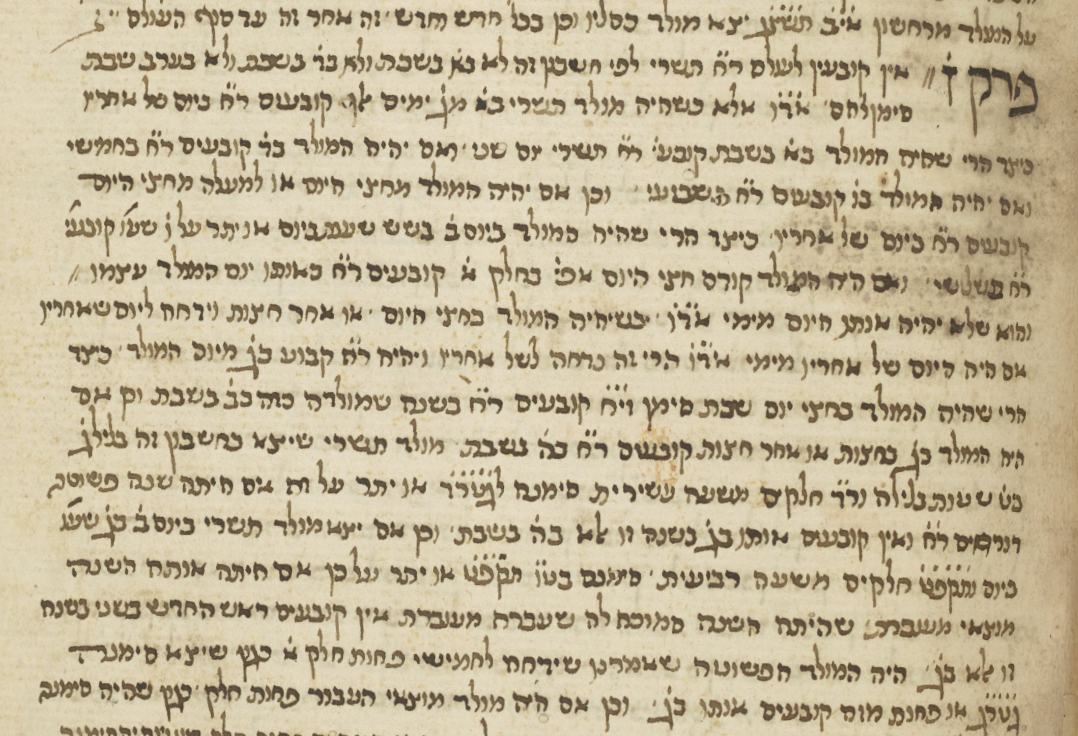 על המולד מרחשון א'י'ב תש'צ'ג יצא מולד כסליו וכן בכל חדש וחדש זה אחר זה עד סוף העולם
פרק ז' אין קובעין לעולם ר'ה תשרי לפי חשבון זה לא בא' בשבת ולא בד' בשבת ולא בערב שבת
סימן להם אד'ו אלא כשהיה מולד תשרי בא' מג' ימים קובעים ר'ה ביום של אחריו
כיצד הרי שהיה המולד בא' בשבת קובעי' ר'ה תשרי יום שני ואם יהיה המולד בד' קובעים ר'ה בחמשי
ואם יהיה המולד בו' קובעים ר'ה השביעי וכן אם יהיה המולד מחצי היום או למעלה מחצי היום
קובעים ר'ה ביום של אחריו כיצד הרי שהיה המולד ביום ב' בשש שעות ביום או יתר על ו' שע' קובעי'
ר'ה בשלשי ואם היה המולד קודם חצי היום אפי' בחלק א' קובעים ר'ה באותו יום המולד עצמו
והוא שלא יהיה אותו היום מימי אד'ו כשיהיה המולד בחצי היום או אחר חצות וידחה ליום שאחריו
אם היה היום של אחריו מימי אד'ו הרי זה נדחה לשל אחריו ויהיה ר'ה קבוע בג' מיום המולד כיצד
הרי שהיה המולד בחצי יום שבת סימן זי'ח קובעים ר'ה בשנה שמולדה כזה בב' בשבת וכן אם
היה המולד בג' בחצות או אחר חצות קובעים ר'ה בה' בשבת מולד תשרי שיצא בחשבון זה בליל ג'
בט' שעות בלילה ור'ד חלקים משעה עשירית סימנה ג'ט'ר'ד או יתר על זה אם היתה שנה פשוטה
דוחים ר'ה ואין קובעים אותו בג' בשנה זו אלא בה' בשבת וכן אם יצא מולד תשרי ביום ב' בג' שעו'
ביום ותקפ'ט חלקים משעה רביעית סימנם בט'ו תקפ'ט או יתר על כן אם היתה אותה השנה
מוצאי מעוברת שהיתה השנה הסמוכה לה שעברה מעוברת אין קובעים ראש החדש בשני בשנה
זו אלא בג' היה המולד הפשוטה שאמרנו שידחה לחמישי פחות חלק א' כגון שיצא סימנה
ג'ט'ר'ג או פחות מזה קובעים אותו בג' וכן אם היה מולד מוצאי העבור פחות חלק כגון שהיה סימנה